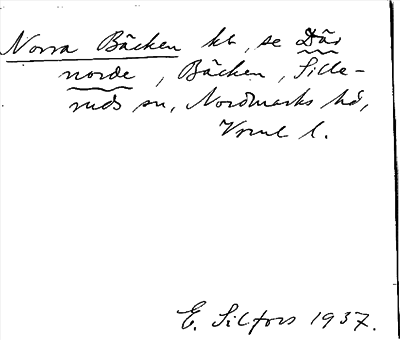 Norra Bäcken kt, se Där
norde, Bäcken, Sille-
ruds sn, Nordmarks hd,
Vrml l.
E. Silfors 1937.